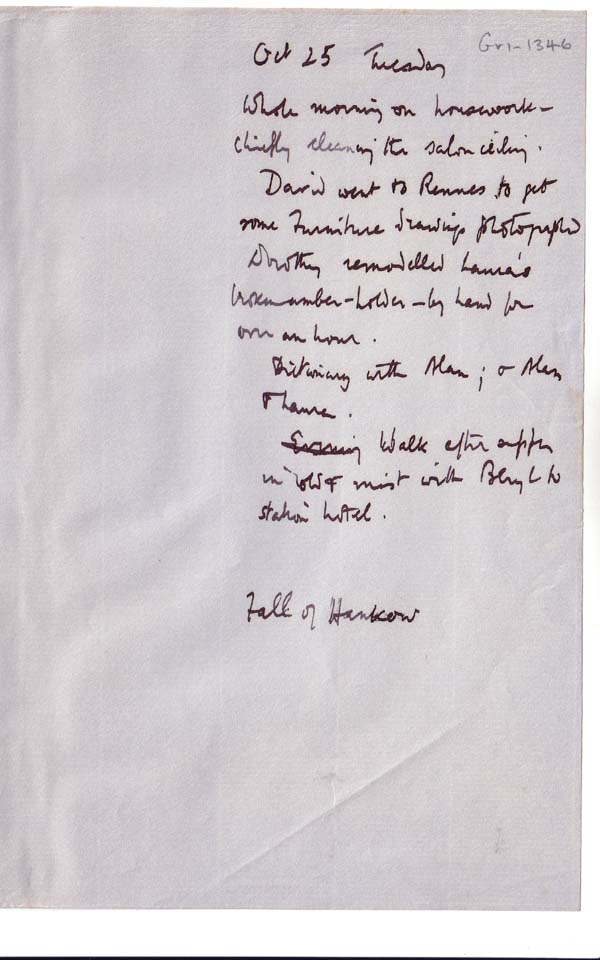 Gr1-1346
Oct 25 Tuesday
Whole morning on housework –
chiefly cleaning the salon ceiling.
David went to Rennes to get
some Furniture drawings photographed
Dorothy remodelled Laura's
number-holder – by hand for
over an hour.
Dictionary with Alan; & Alan
& Laura.
Evening Walk after supper
in cold & mist with Beryl to
station hotel.
Fall of Hankow